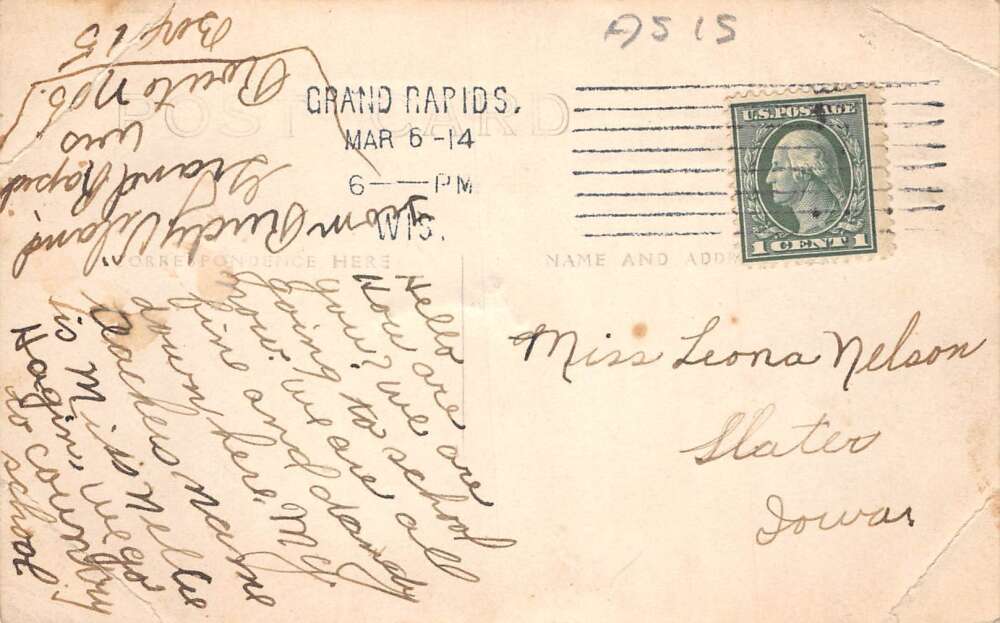 A515
POST CARD
GRAND RAPIDS.
MAR 6 - 14
6 — PM
WIS.
U.S. POSTAGE
1 CENT 1
CORRESPONDENCE HERE
NAME AND ADD
Miss Leona Nelson
Slater
Iowa
Hello
How are
you? we are
going to school
now. we are all
fine and dandy
down here. My
teachers name
is Miss Nellie
Hagin, we go
to country
school
from Rudy
Grand Rapid
Wis
Route No 6.
Box 15